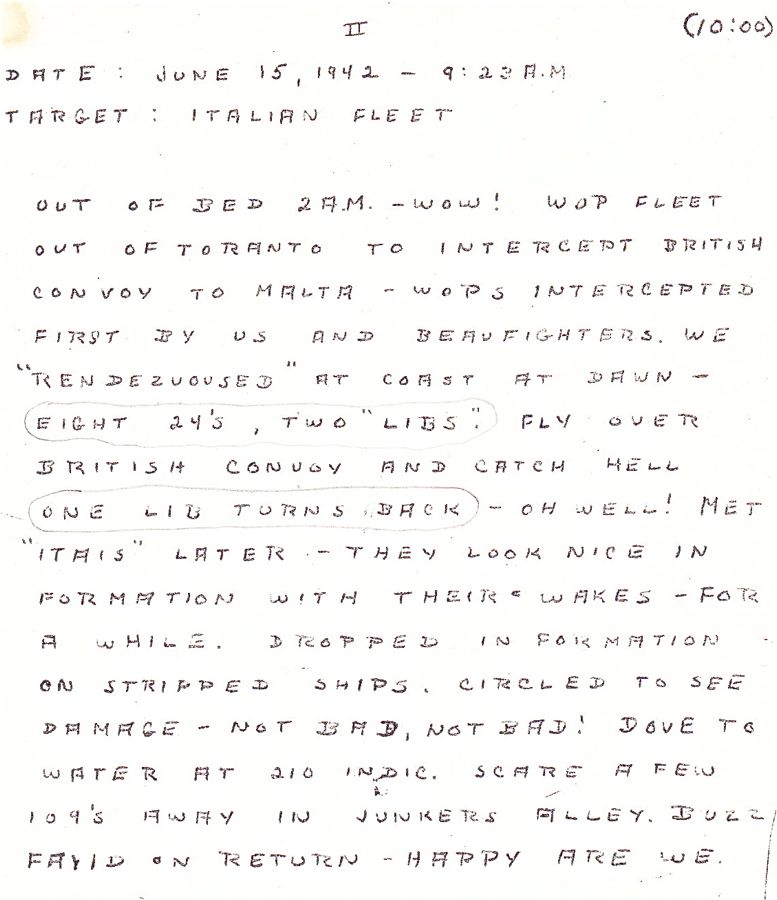 II (10:00)
DATE : JUNE 15, 1942 - 9:23 A.M
TARGET : ITALIAN FLEET
OUT OF BED 2 A.M. - WOW! WOP FLEET
OUT OF TORANTO TO INTERCEPT BRITISH
CONVOY TO MALTA - WOPS INTERCEPTED
FIRST BY US AND BEAUFIGHTERS. WE
"RENDEZVOUSED" AT COAST AT DAWN -
EIGHT 24'S, TWO "LIBS". FLY OVER
BRITISH CONVOY AND CATCH HELL
ONE LIB TURNS BACK - OH WELL! MET
"ITAIS" LATER - THEY LOOK NICE IN
FORMATION WITH THEIR WAKES - FOR
A WHILE. DROPPED IN FORMATION
ON STRIPPED SHIPS. CIRCLED TO SEE
DAMAGE - NOT BAD, NOT BAD! DOVE TO
WATER AT 210 INDIC. SCARE A FEW
109'S AWAY IN JUNKERS ALLEY. BUZZ
FAYID ON RETURN - HAPPY ARE WE.